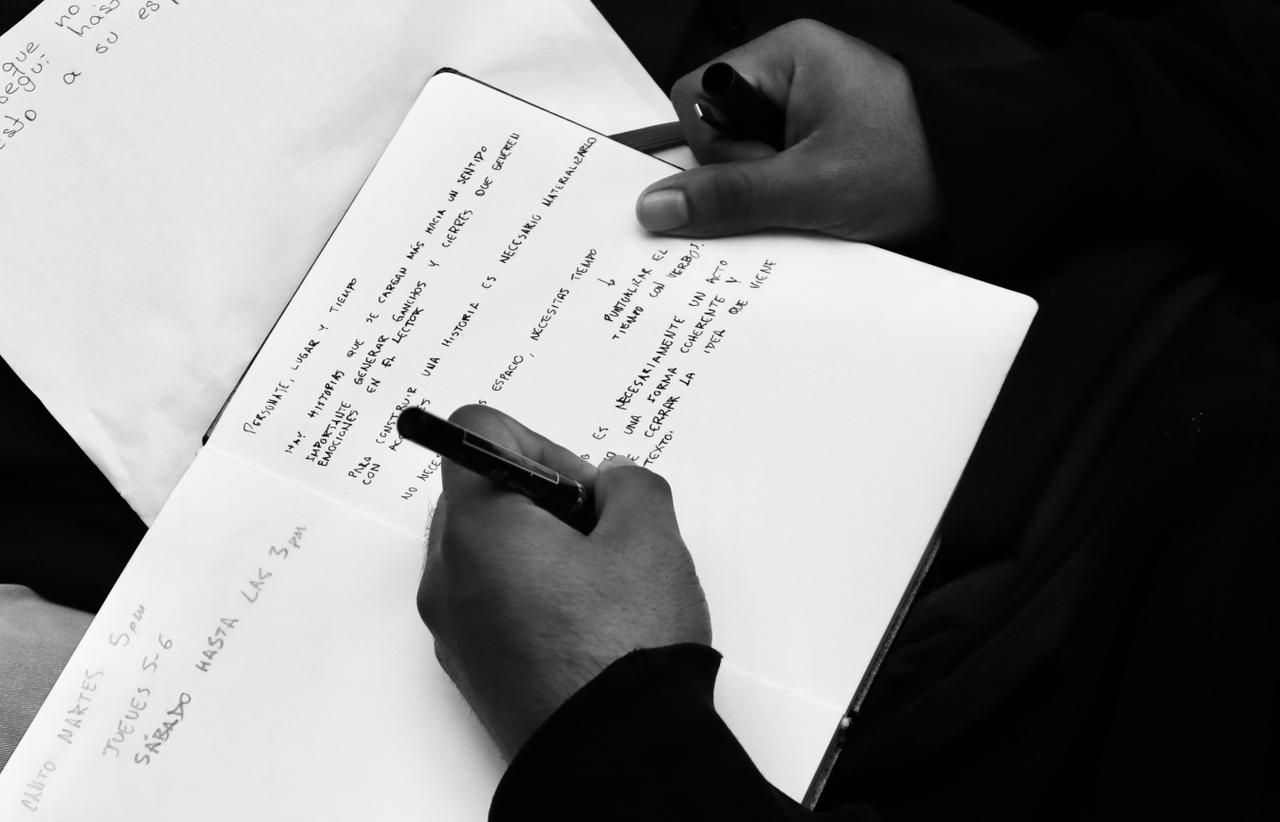 que no
segui hasta
esto a su es
PERSONAJE, LUGAR Y TIEMPO
HAY HISTORIAS QUE SE CARGAN MÁS HACIA UN SENTIDO
IMPORTANTE GENERAR GANCHOS Y CIERRES QUE GENEREN
EMOCIONES EN EL LECTOR
PARA CONSTRUIR UNA HISTORIA ES NECESARIO MATERIALIZARLO
CON
ESPACIO, NECESITAS TIEMPO
↓
PUNTUALIZAR EL
TIEMPO CON VERBOS.
ES NECESARIAMENTE UN ACTO
UNA FORMA COHERENTE Y
CERRAR LA IDEA QUE VIENE
TEXTO.
CANTO MARTES 5 pm
JUEVES 5-6
SÁBADO HASTA LAS 3 PM